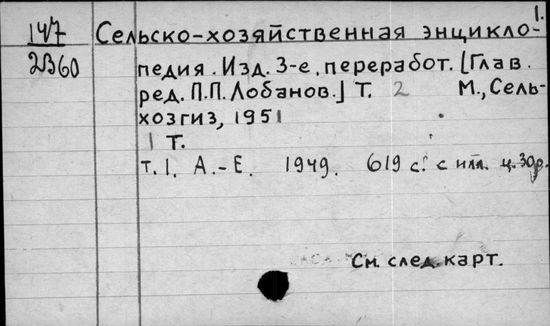 1.
147 Сельско-хозяйственная энцикло-
2В60 педия. Изд. 3-е, переработ. [Глав.
ред. П.П. Лобанов.] Т. 2 М., Сель-
хозгиз, 1951
1 т.
т. 1. А.-Е. 1949. 619 с. с илл. ц. 30р.
См. след. карт.